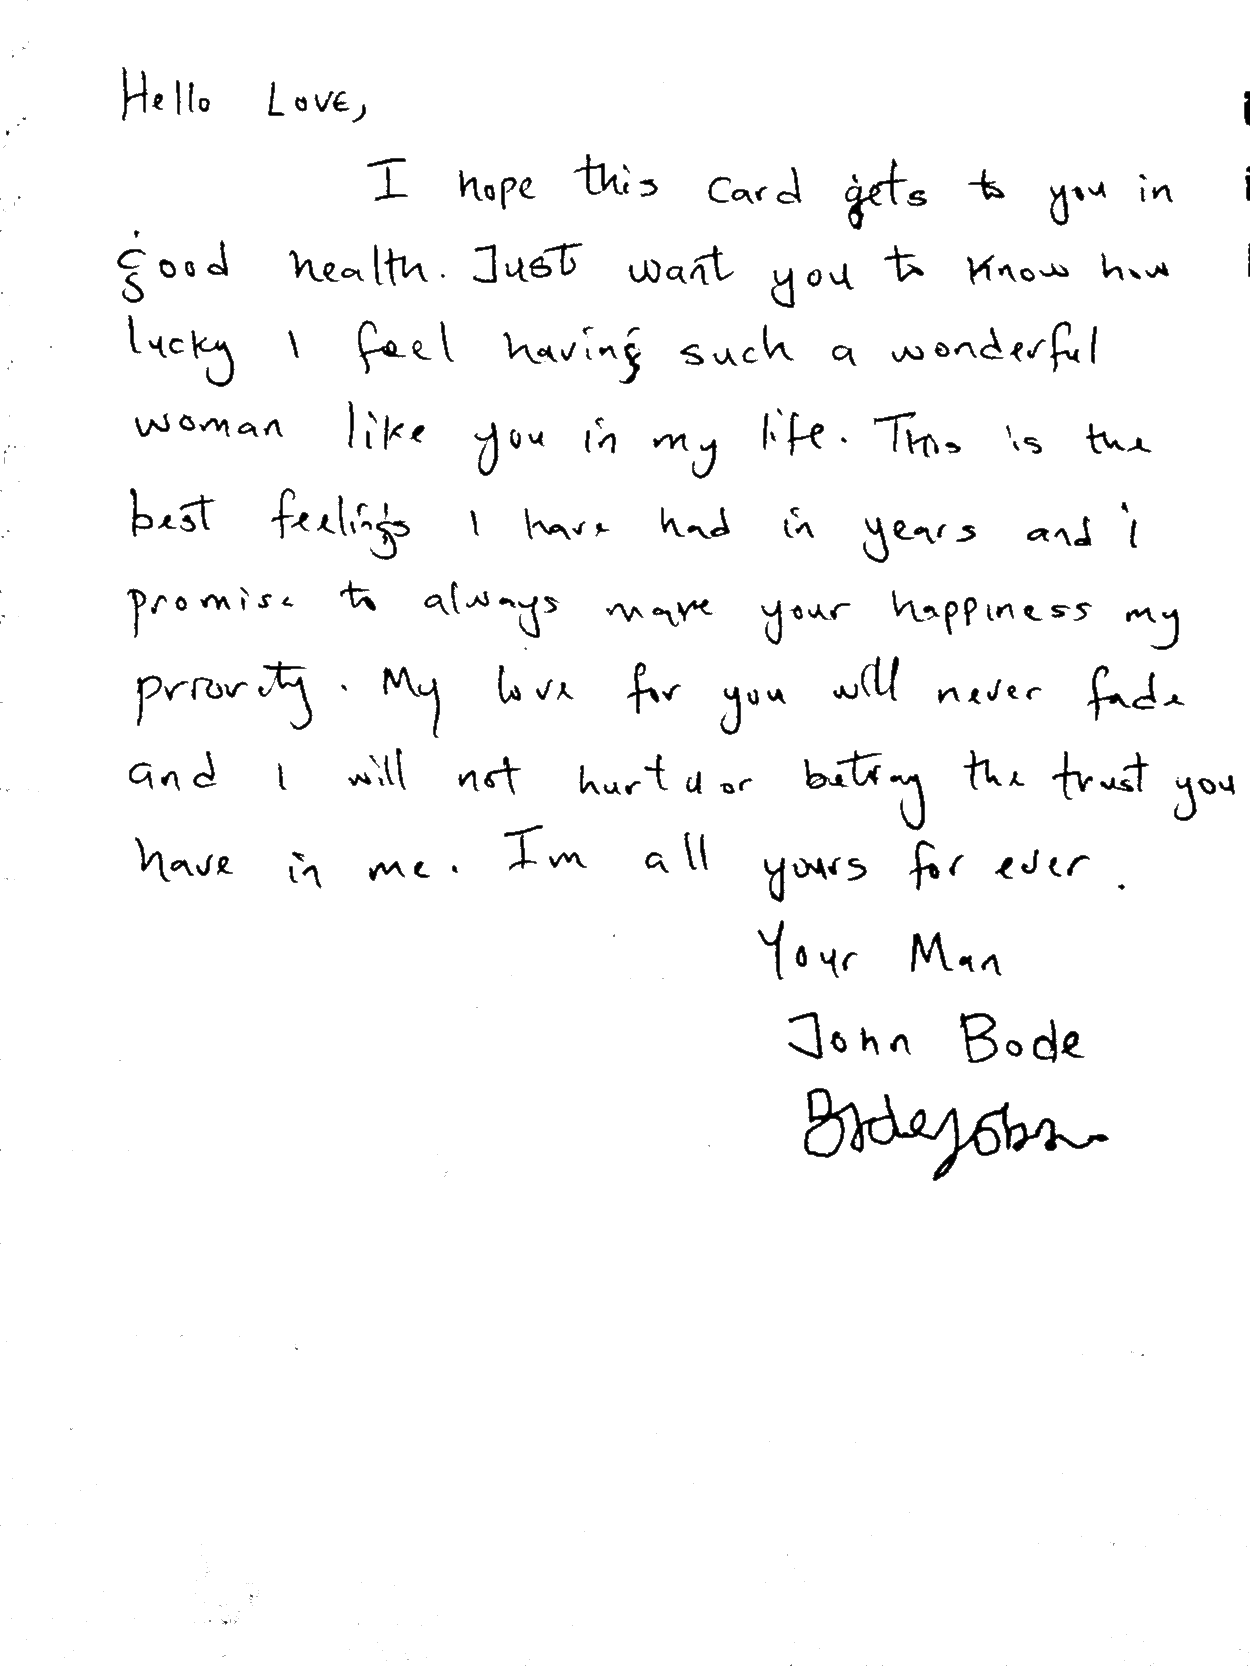 Hello Love,
I hope this card gets to you in
good health. Just want you to know how
lucky I feel having such a wonderful
woman like you in my life. This is the
best feelings I have had in years and i
promise to always make your happiness my
priority. My love for you will never fade
and I will not hurt u or betray the trust you
have in me. Im all yours for ever.
Your Man
John Bode
Bodejohn